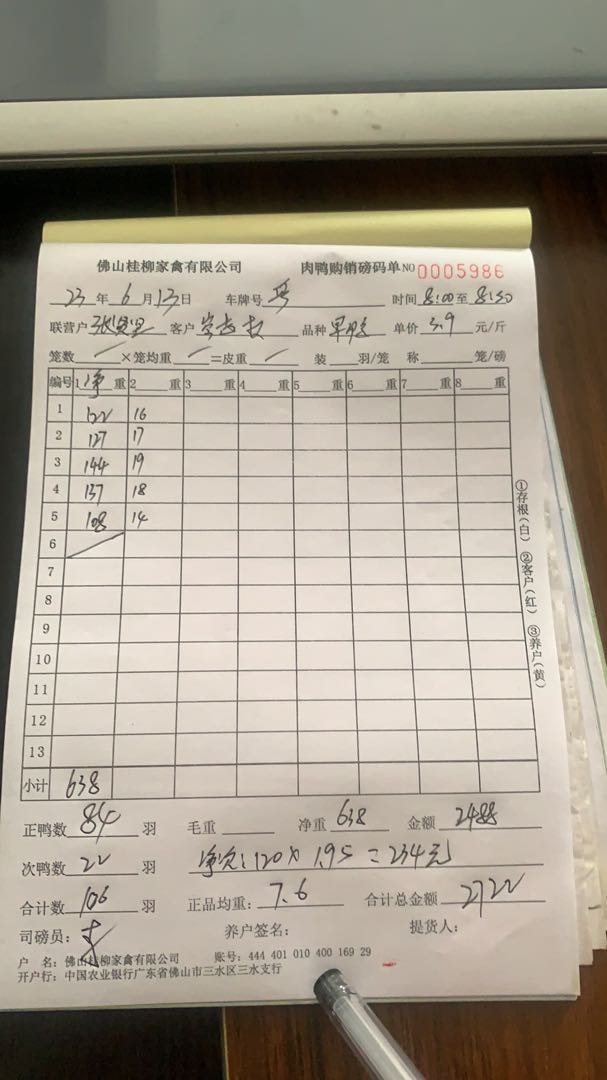 佛山桂柳家禽有限公司 肉鸭购销磅码单 NO 0005986
23 年 6 月 13 日 车牌号 时间 8:00 至 8:30
联营户 张 客户 品种 单价 3.9 元/斤
笼数 ×笼均重 =皮重 装 羽/笼 称 笼/磅
编号 1 净 重 2 重 3 重 4 重 5 重 6 重 7 重 8 重
1 122 16
2 127 17
3 144 19
4 137 18
5 108 14
6
7
8
9
10
11
12
13
小计 638
正鸭数 84 羽 毛重 净重 638 金额 2488
次鸭数 22 羽 净次:120 × 1.95 = 234元
合计数 106 羽 正品均重: 7.6 合计总金额 2722
司磅员: 养户签名: 提货人:
户 名: 佛山桂柳家禽有限公司 账号: 444 401 010 400 169 29
开户行: 中国农业银行广东省佛山市三水区三水支行
①存根(白) ②客户(红) ③养户(黄)